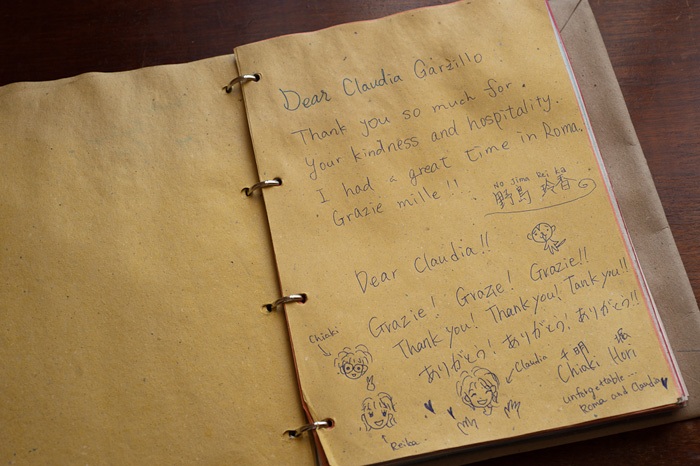 Dear Claudia Garzillo
Thank you so much for
your kindness and hospitality.
I had a great time in Roma.
Grazie mille!!
No Jima Rei ka
野島 玲香
Dear Claudia!!
Grazie! Grazie! Grazie!!
Thank you! Thank you! Tank you!!
ありがとう! ありがとう! ありがとう!!
Chiaki
Claudia
千明 堀
Chiaki Hori
unforgettable...
Roma and Claudia
Reika